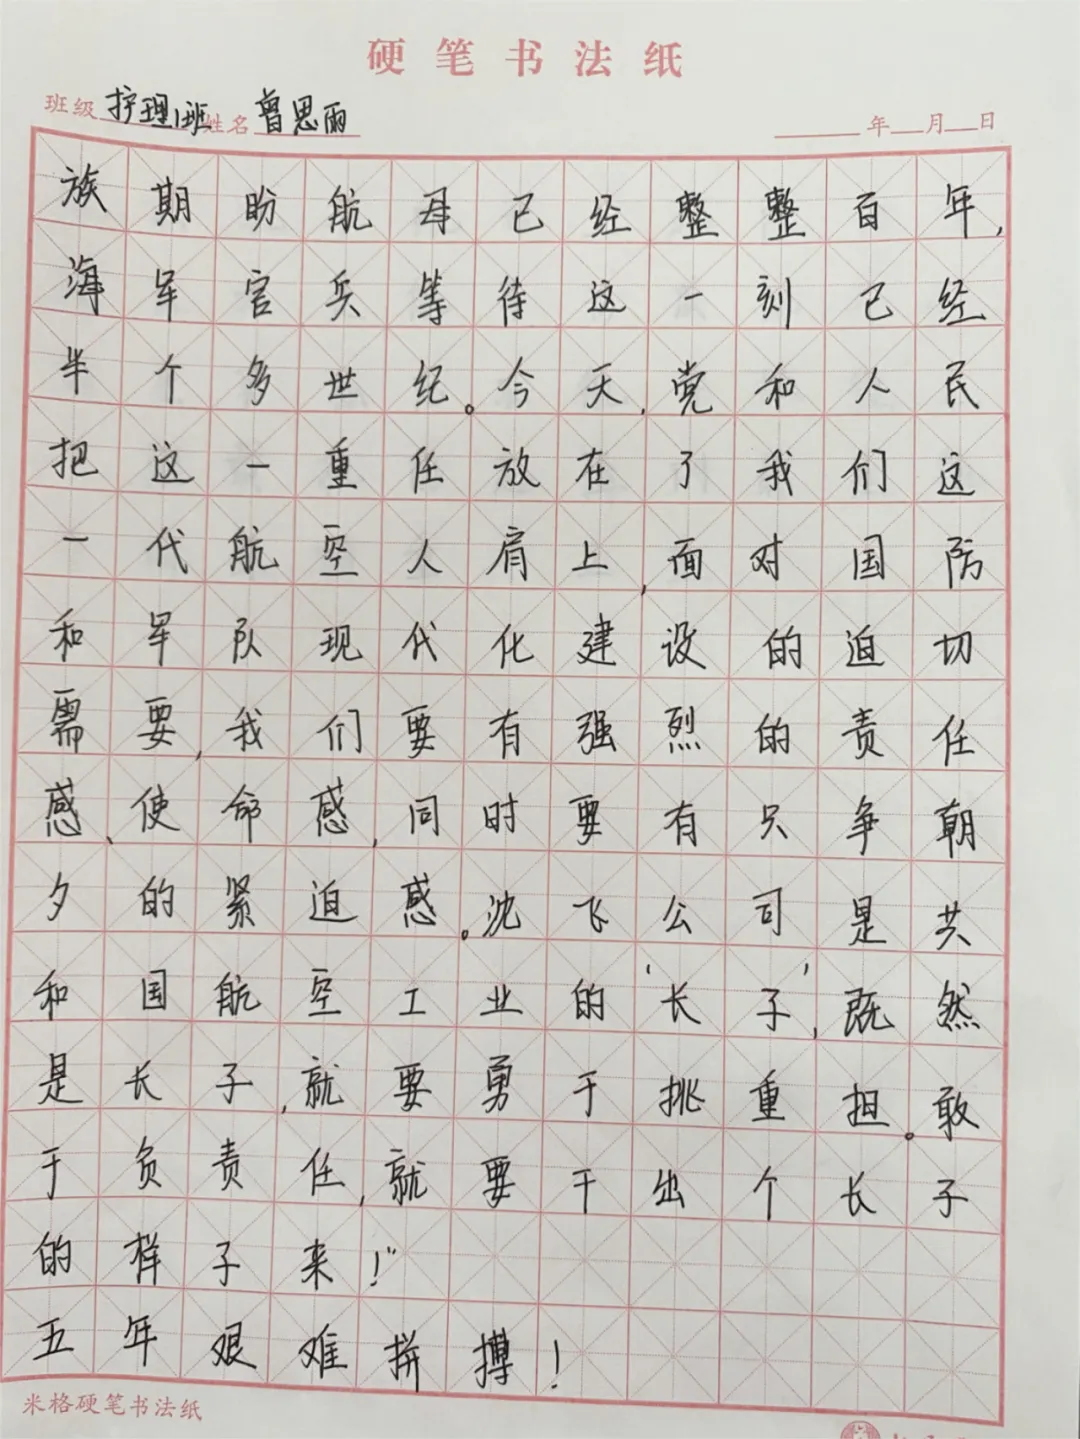 硬笔书法纸
班级 护理1班 姓名 曾思雨 年 月 日
族期盼航母已经整整百年,
海军官兵等待这一刻已经
半个多世纪。今天,党和人民
把这一重任放在了我们这
一代航空人肩上,面对国防
和军队现代化建设的迫切
需要,我们要有强烈的责任
感、使命感,同时要有只争朝
夕的紧迫感。沈飞公司是共
和国航空工业的‘长子’,既然
是长子,就要勇于挑重担。敢
于负责任,就要干出个长子
的样子来!”
五年艰难拼搏!
米格硬笔书法纸